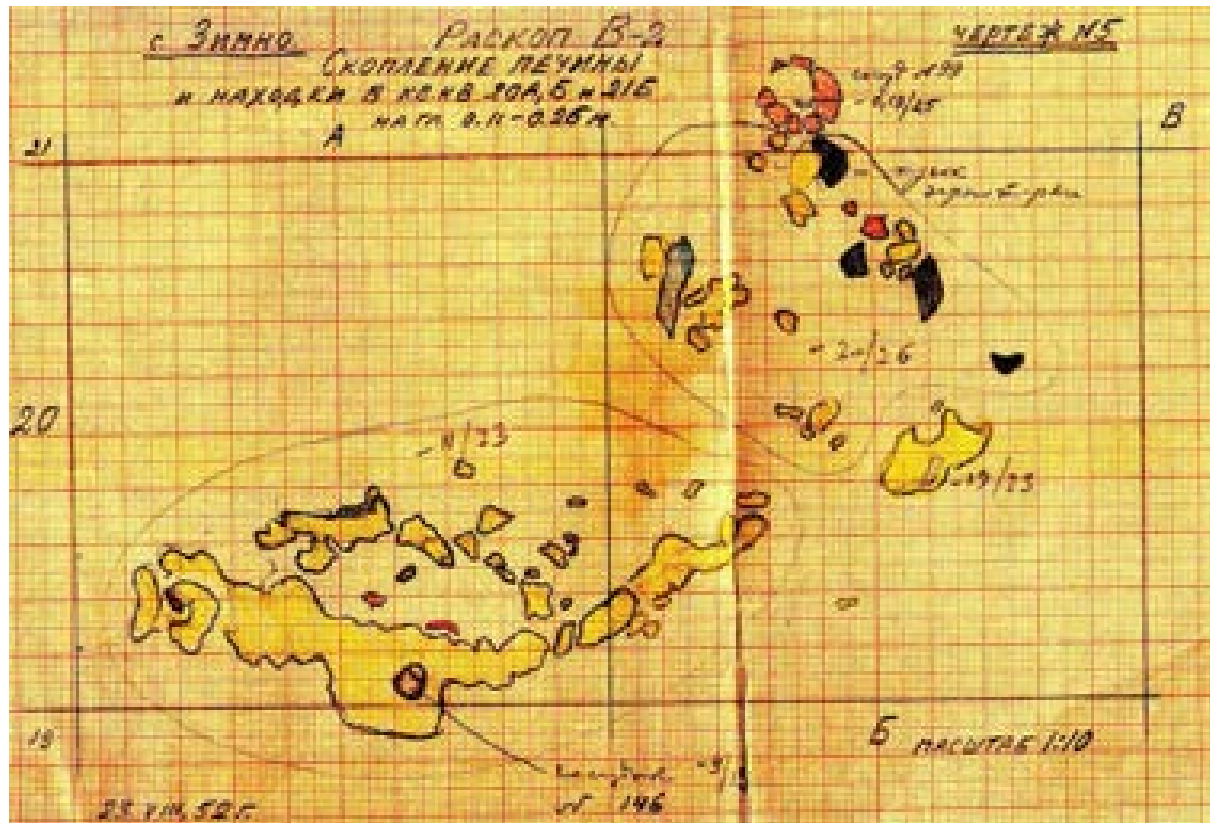 с Зимно
РАСКОП Б-2
ЧЕРТЕЖ №5
СКОПЛЕНИЕ ПЕЧИНЫ
И НАХОДКИ В КВ КВ 20А,Б И 21Б
НА ГЛ 0.11-0.26 М
А
В
21
-2-/26
20
-11/23
-19/23
19
Б
МАСШТАБ 1:10
№ 146
23 VIII, 52 г.